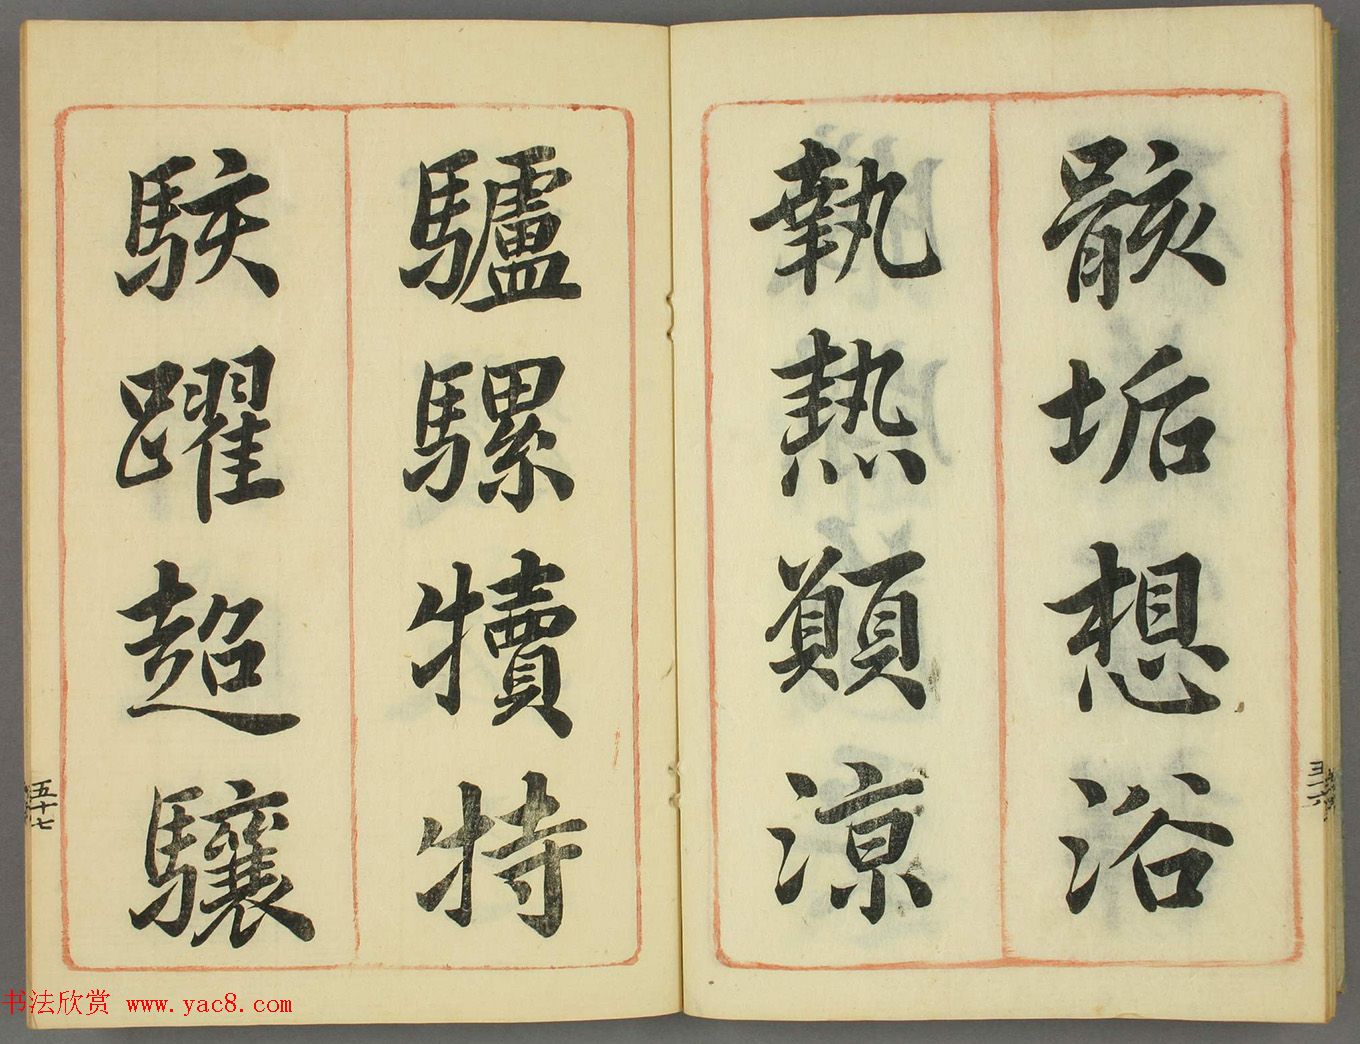 骸垢想浴
執熱願涼
驢騾犢特
駭躍超驤
五十七
书法欣赏 www.yac8.com